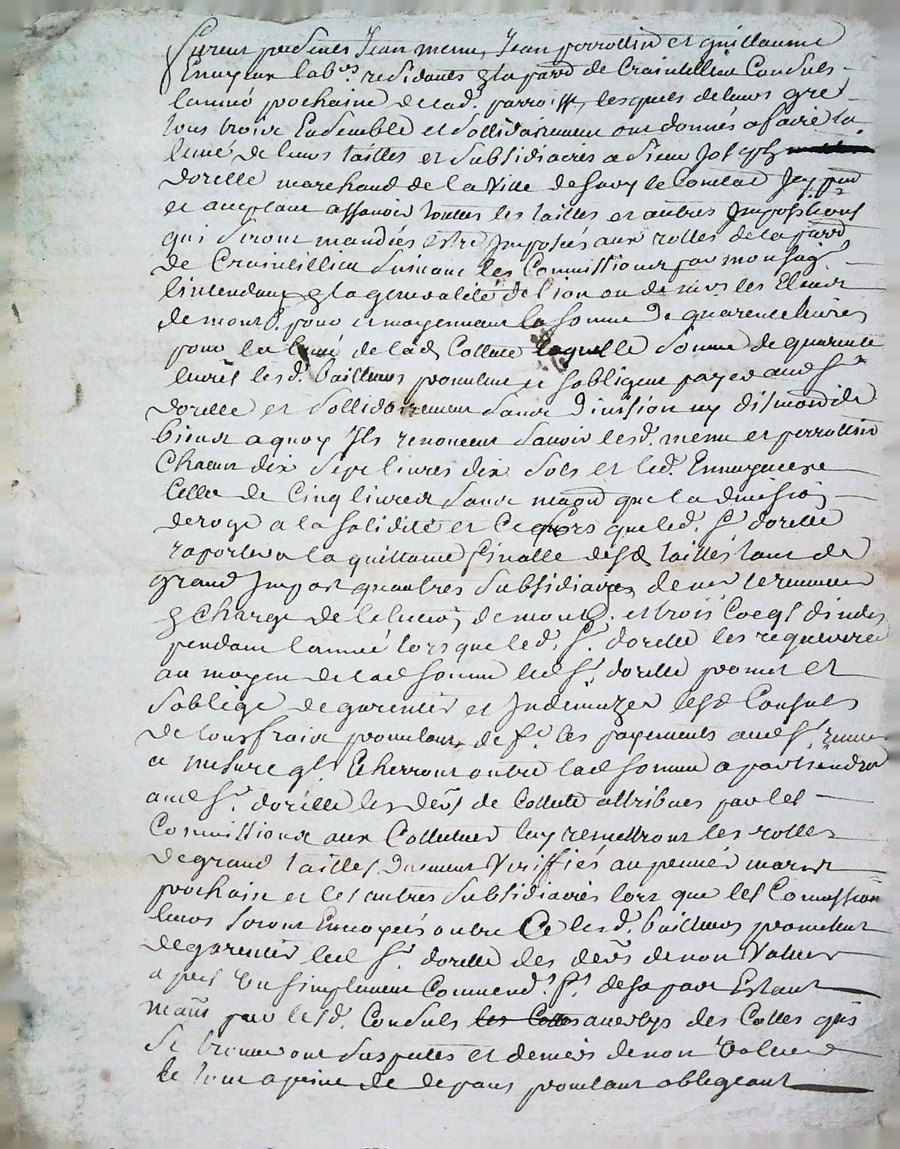 furent presents Jean menu, Jean perrottin et guillaume
Ennyeux lab.rs residants en la parr de Craintillieu Consuls
lanneé prochaine de lad. parroisse, lesquels de leurs gre
tous trois Ensemble et sollidairement ont donnés a faire la
leveé de leurs tailles et subsidiaires a Sieur Joseph
dorelle marchand de la Ville de Sury le Comtal Icy pnt
et acceptant assavoir toutes les tailles et autres Impositions
qui seront mandées estre Imposeés aux rolles de la parr
de Craintillieu suivant les Commissions par monseig
lintendant en la generalité de lion ou de mrs les Eleus
de montb. pour et moyennant la somme de quarente livres
pour la leveé de lad Collecte laquelle somme de quarente
livres lesd. bailleurs promettent et sobligent payer aud Sr
dorelle et sollidairement sans division ny dismord de
biens a quoy Ils renoncent savoir lesd. menu et perrottin
Chacun dix sept livres dix sols et led. Ennyeux
Celle de Cinq livres sans que la division
deroge a la solidité et Lors que led. Sr dorelle
raportera la quittance finalle desd tailles tant de
grand Impost quautres subsidiaires de mr le receveur
en Charge de lelection de montb. et trois Coqs dindes
pendant lanneé lorsque led. Sr. dorelle les requerera
au moyen de lad somme led Sr. dorelle promet et
soblige de garentir et Indemnizer lesd Consuls
de tous fraix promettant de fe. les payements aud Sr. receveur
a mesure ql. Echerront outre lad somme apartiendra
aud Sr. dorelle les deus de Collecte attribues par les
Commissions aux Collecteurs luy remettront les rolles
de grand tailles duement Veriffiés au premier mars
prochain et les autres subsidiaires lors que les Commission
leurs seront Envoyeés outre Ce lesd. bailleurs promettent
de garentir led Sr. dorelle des deus de non Valeur
apres Un simplement Commend. ft. de sa part Estant
par lesd. Consuls les Cottes des Cottes quis
se trouveront suspectes et deniers de non Valeur
le tout a peine de depans promettant obligeant